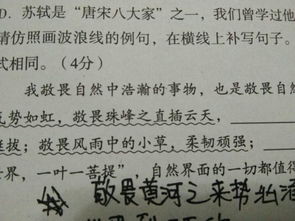 D. 苏轼是“唐宋八大家”之一，我们曾学过他
请仿照画波浪线的例句，在横线上补写句子。
式相同。（4分）
我敬畏自然中浩瀚的事物，也是敬畏自然
气势如虹，敬畏珠峰之直插云天，
挺拔；敬畏风雨中的小草，柔韧顽强；
世界，一叶一菩提”，自然界面的一切都值得
敬畏黄河之来势汹涌